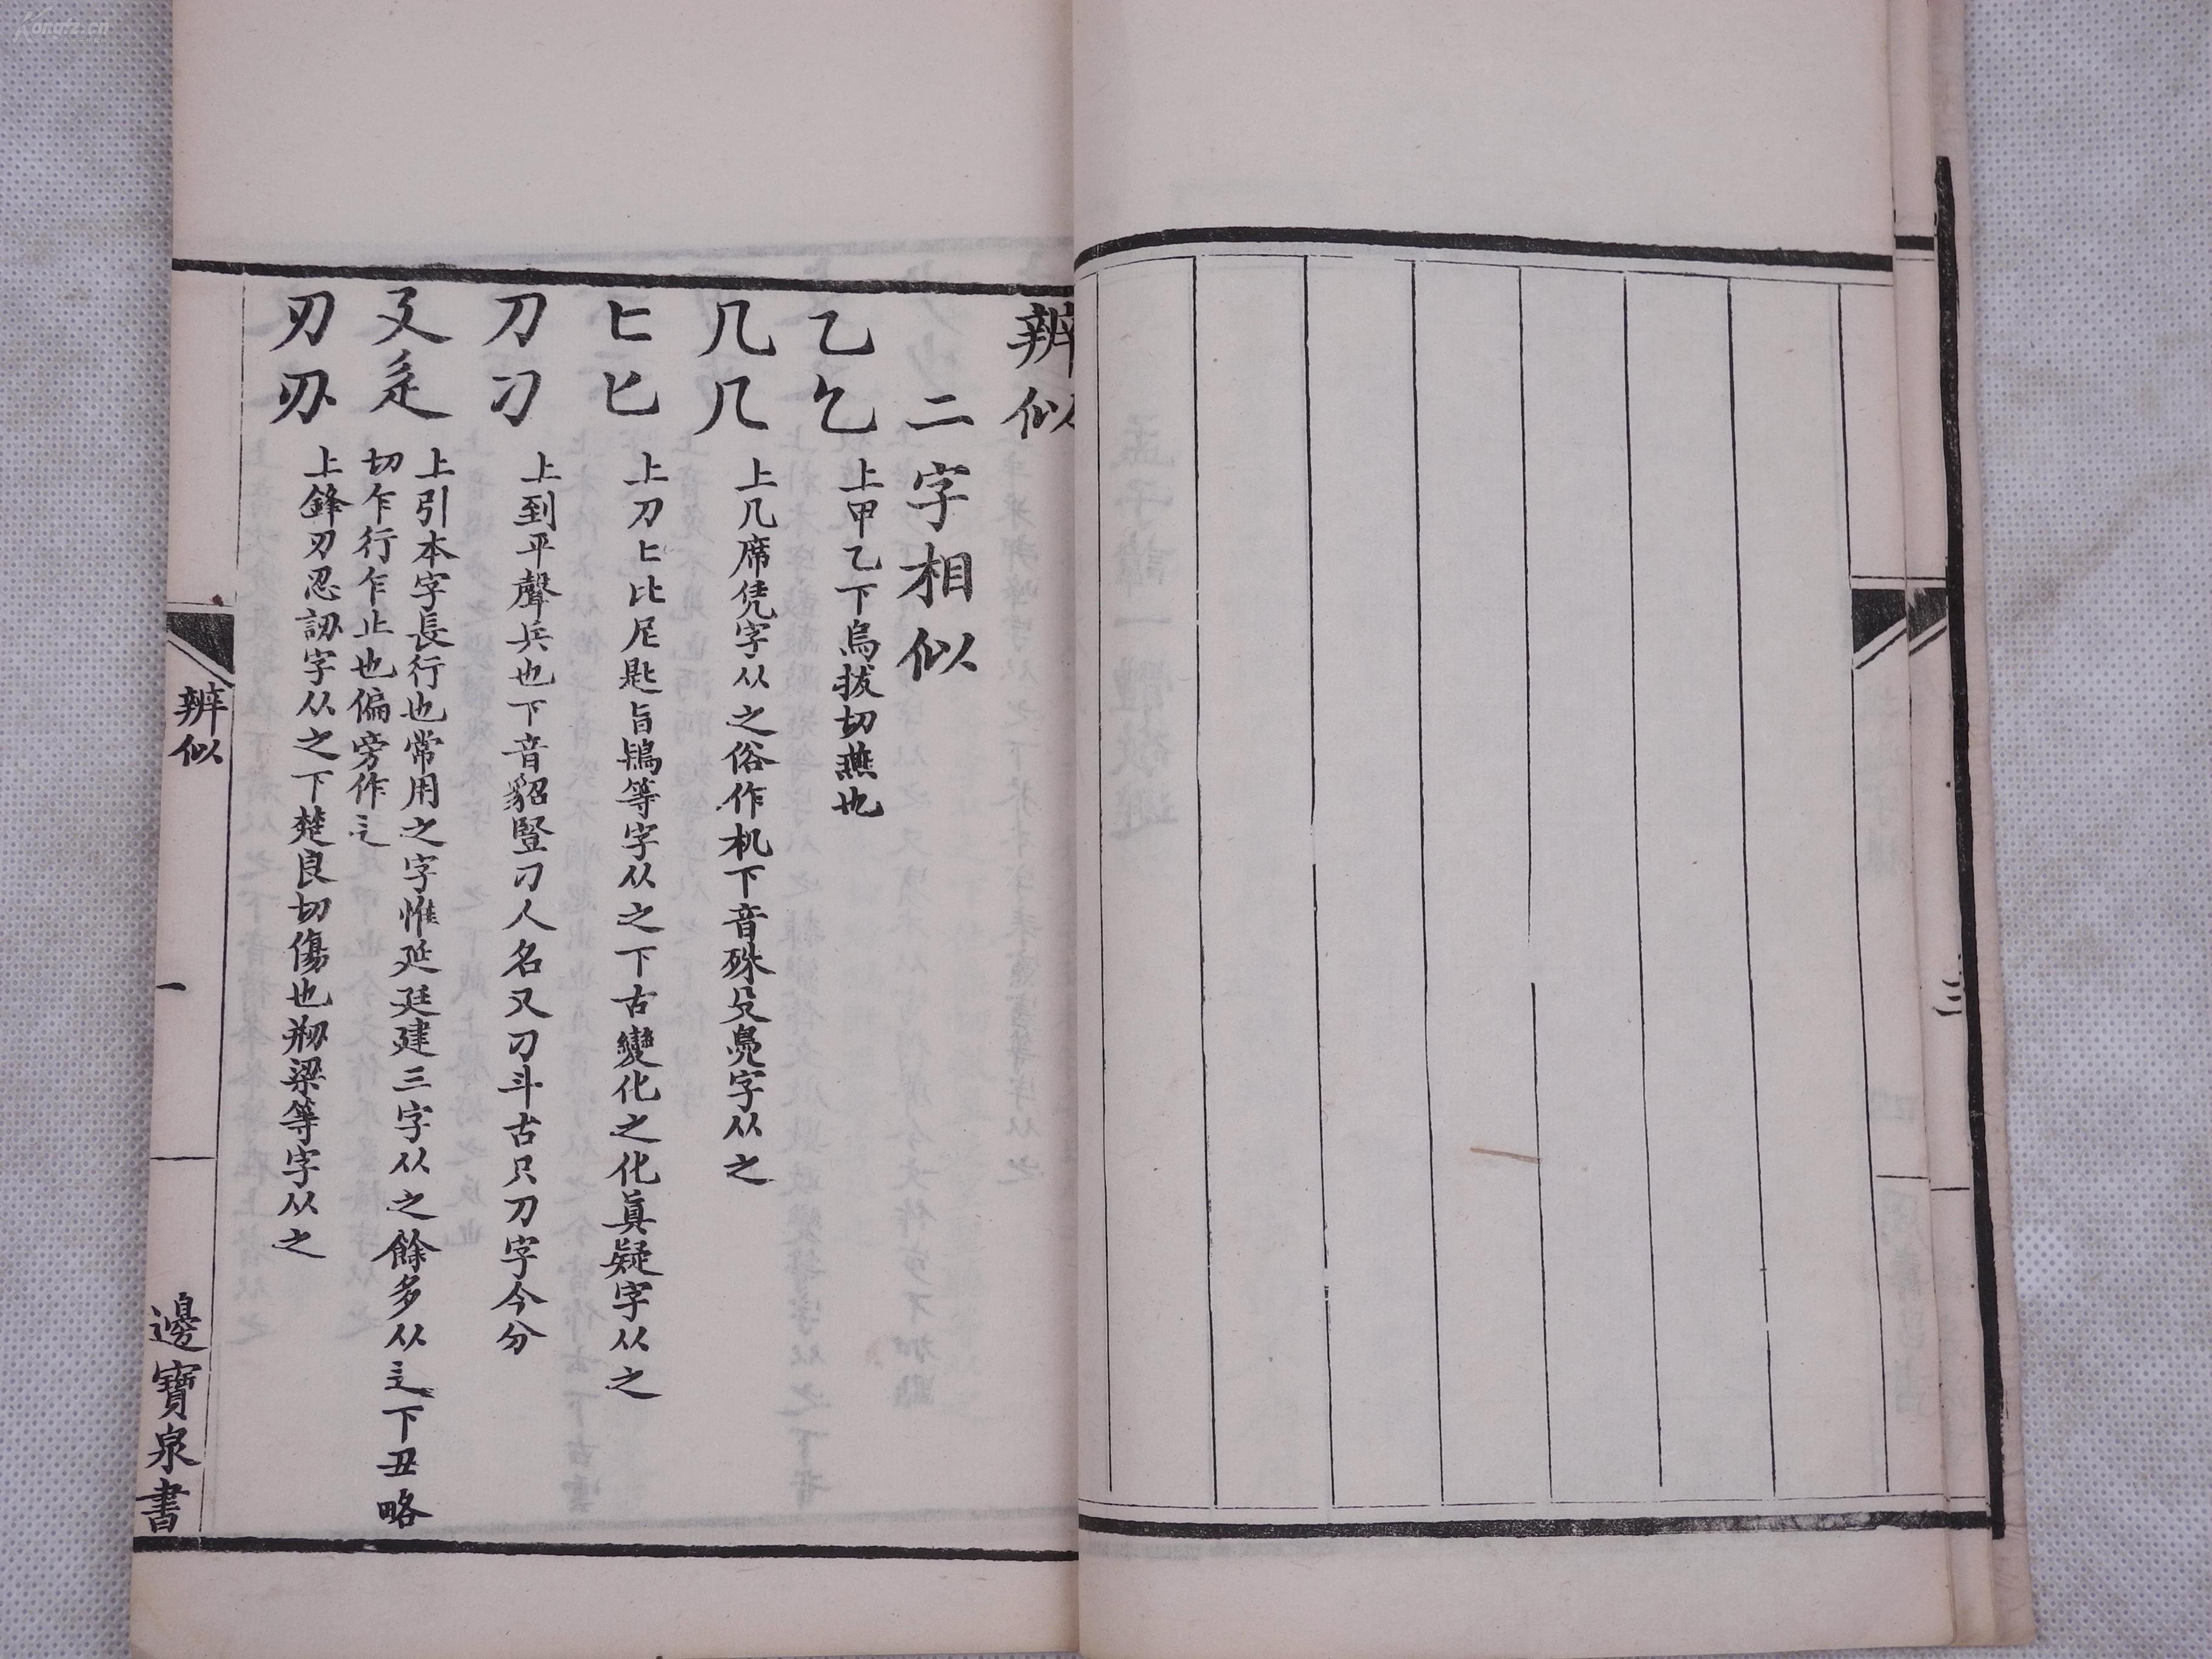 辨似
二字相似
乙乞 上甲乙下烏拔切燕也
几几 上几席凭字从之俗作机下音殊殳鳧字从之
匕匕 上刀匕比尼匙旨鴇等字从之下古變化之化眞疑字从之
刀刁 上到平聲兵也下音貂豎刁人名又刁斗古只刀字今分
廴辵 上引本字長行也常用之字惟延廷建三字从之餘多从辶下丑略
切乍行乍止也偏旁作辶
刃刅 上鋒刃忍訒字从之下楚良切傷也剏梁等字从之
辨似
一
邊寶泉書
三
Kongfz.cn